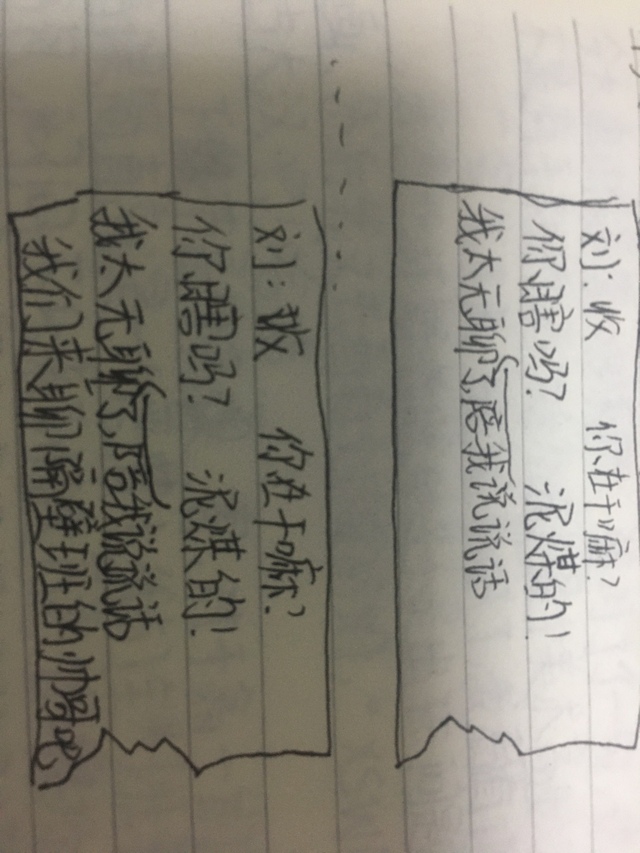 刘:收 你在干嘛?
你瞎吗? 泥煤的!
我太无聊了,陪我说说话
刘:收 你在干嘛?
你瞎吗? 泥煤的!
我太无聊了,陪我说说话
我们来聊隔壁班的帅哥吧